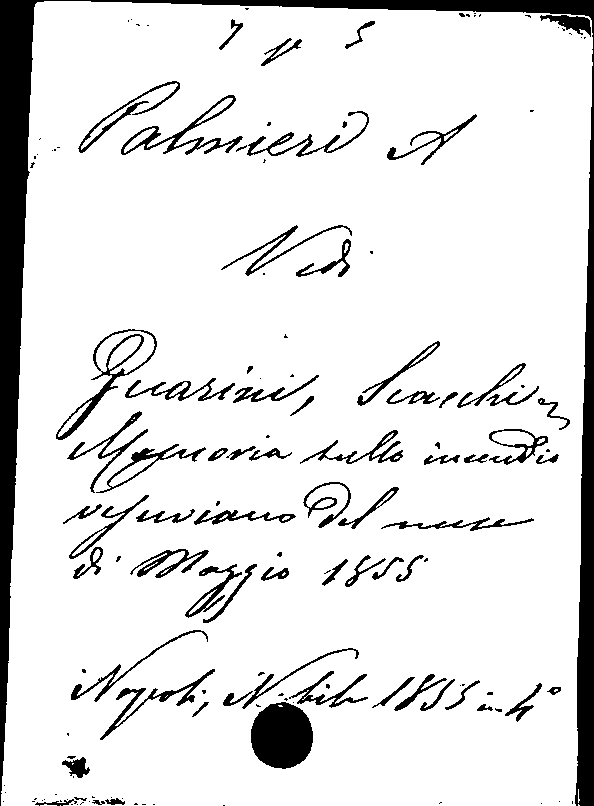 7 p 5
Palmieri A
Vedi
Guarini, Scacchi
Memoria sullo incendio
vesuviano del mese
di Maggio 1855
Napoli, Nobile 1855 in 4°